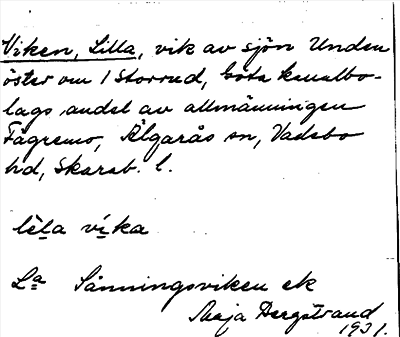 Viken, Lilla, vik av sjön Unden
öster om 1 Storrud, Göta kanalbo-
lags andel av allmänningen
Fägremo, Älgarås sn, Vadsbo
hd, Skarab. l.
lìla víka
La Sånningsviken ek
Maja Bergstrand
1931.